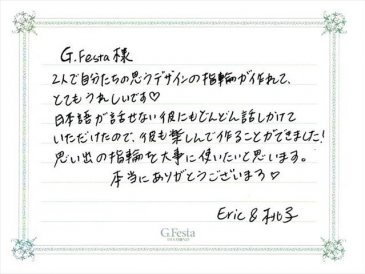 G.Festa様
2人で自分たちの思うデザインの指輪が作れて、
とてもうれしいです♡
日本語が話せない彼にもどんどん話しかけて
いただけたので、彼も楽しんで作ることができました!
思い出の指輪を大事に使いたいと思います。
本当にありがとうございます♡
Eric & 桃子
G.Festa